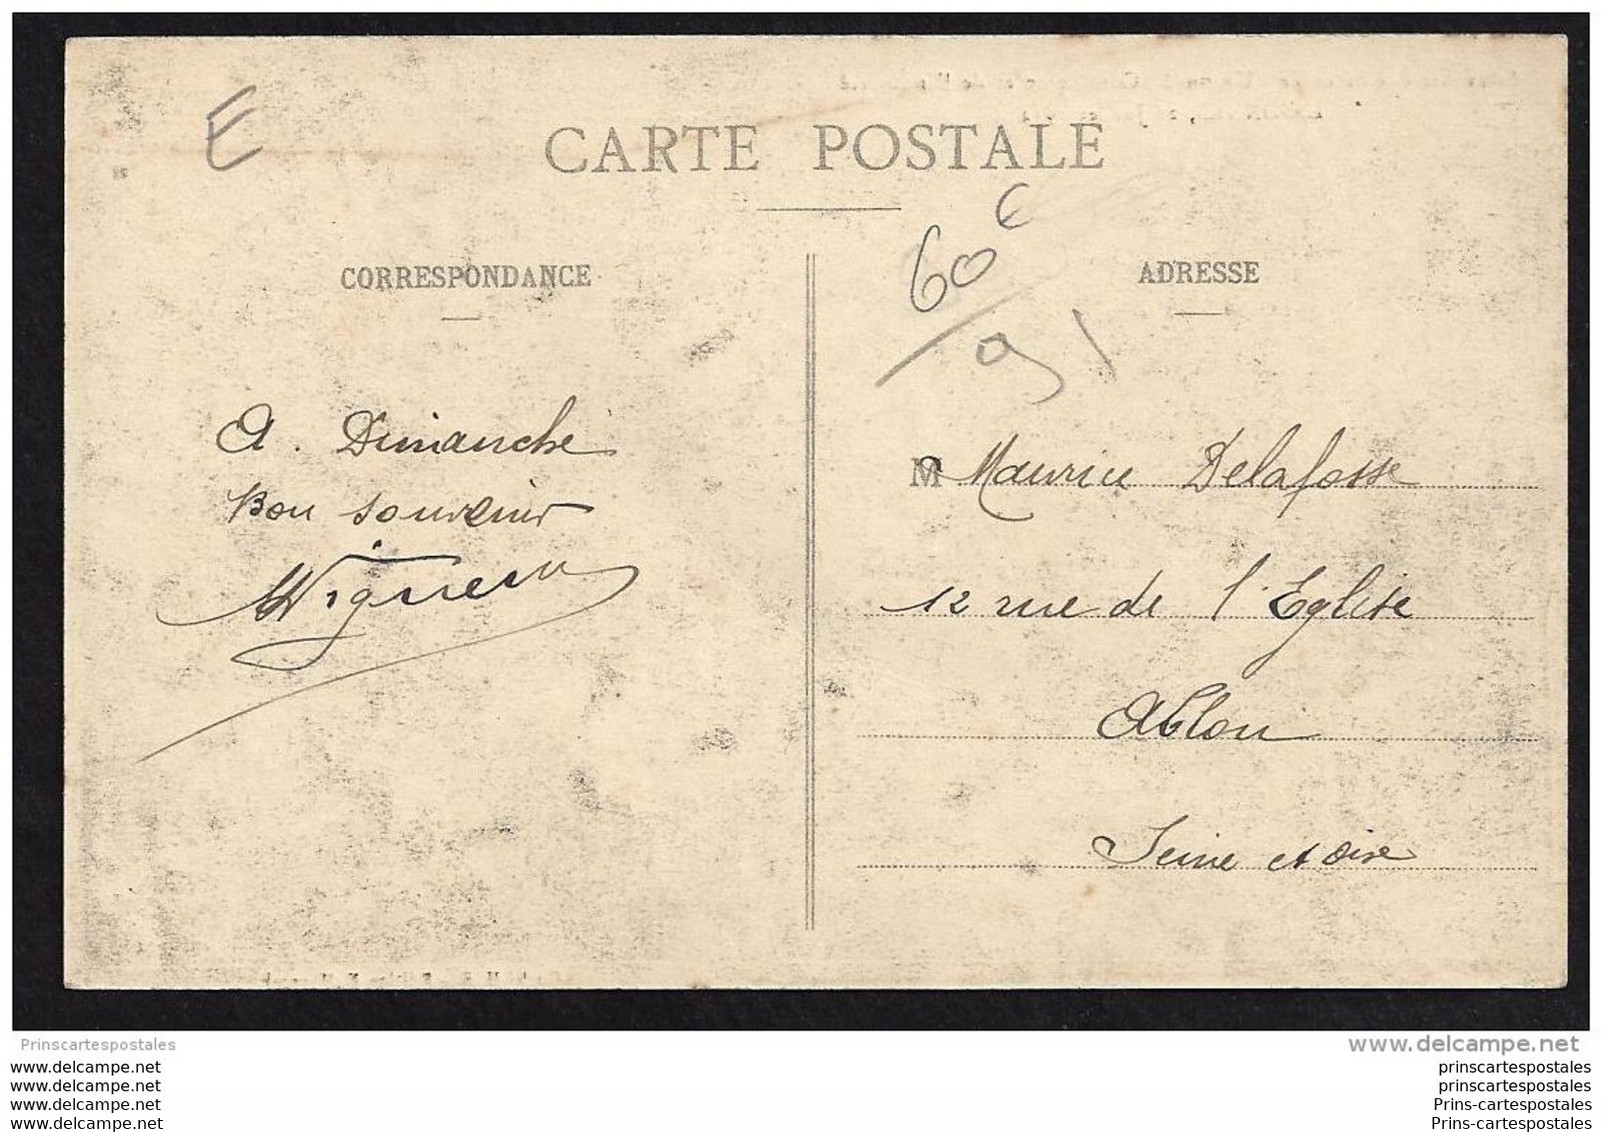 E
CARTE POSTALE
60€
91
CORRESPONDANCE
ADRESSE
A Dimanche
Bon souvenir
M Maurice Delafosse
12 rue de l'Eglise
Ablon
Seine et Oise
Prinscartespostales
www.delcampe.net
www.delcampe.com
www.delcampe.com
www.delcampe.com
www.delcampe.com
prinscartespostales
prinscartespostales
Prins-cartespostales
Prins-cartespostales